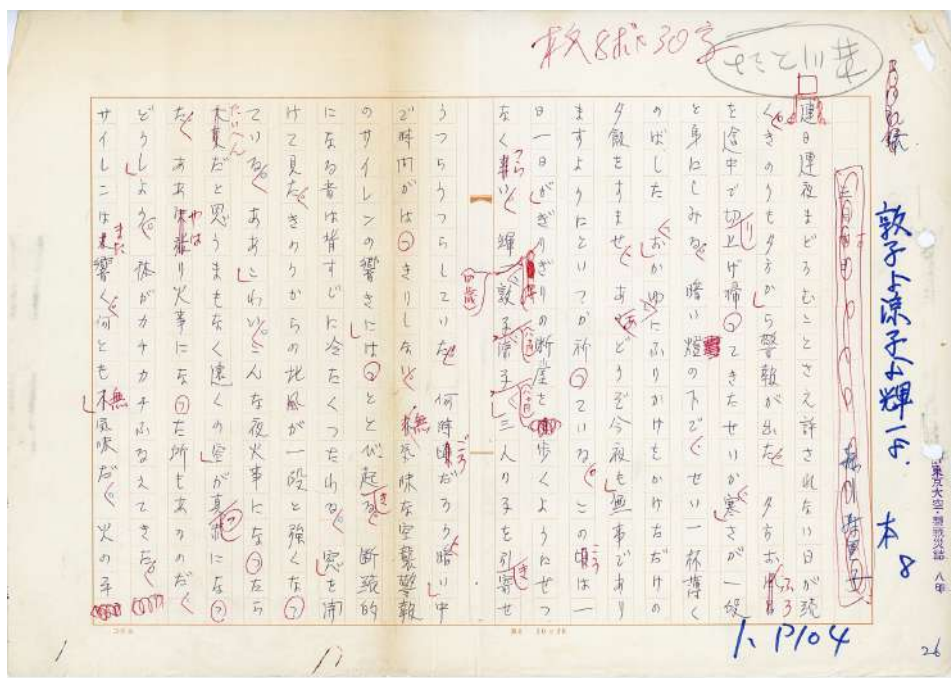 本文8ポ30字
敦子よ涼子よ輝一よ.
本 8
東京大空・戦災誌
連日連夜まどろむことさえ許されない日が続
くきのうも夕方から警報が出た 夕方お
を途中で切上げ掃ってきたせいか寒さが一段
と身にしみる 暗い燈の下でせい一杯薄く
のばした おかゆにふりかけをかけただけの
夕飯をすませ あゝどうぞ今夜も無事であり
ますようにといつか祈っている この頃は一
日一日がぎりぎりの断崖を歩くようにせつ
なく 輝一 敦子 涼子 三人の子を引寄せ
うつらうつらしていた 何時頃だろう暗い中
で時間がはっきりしない 無気味な空襲警報
のサイレンの響きにはっととび起る 断続的
になる音は背すじに冷たくつたわる 窓を開
けて見た きのうからの北風が一段と強くなっ
ている あゝこわい こんな夜火事になったら
大変だと思うまもなく遠くの空が真紅になっ
た あゝ矢張り火事になった所もあるのだ
どうしよう 体がカチカチふるえてきた
サイレンは未響く 何とも無気味だ 火の子
たいへん
やは
また
ごろ
ころ
つら
ふろ
無
無
1、P104
26